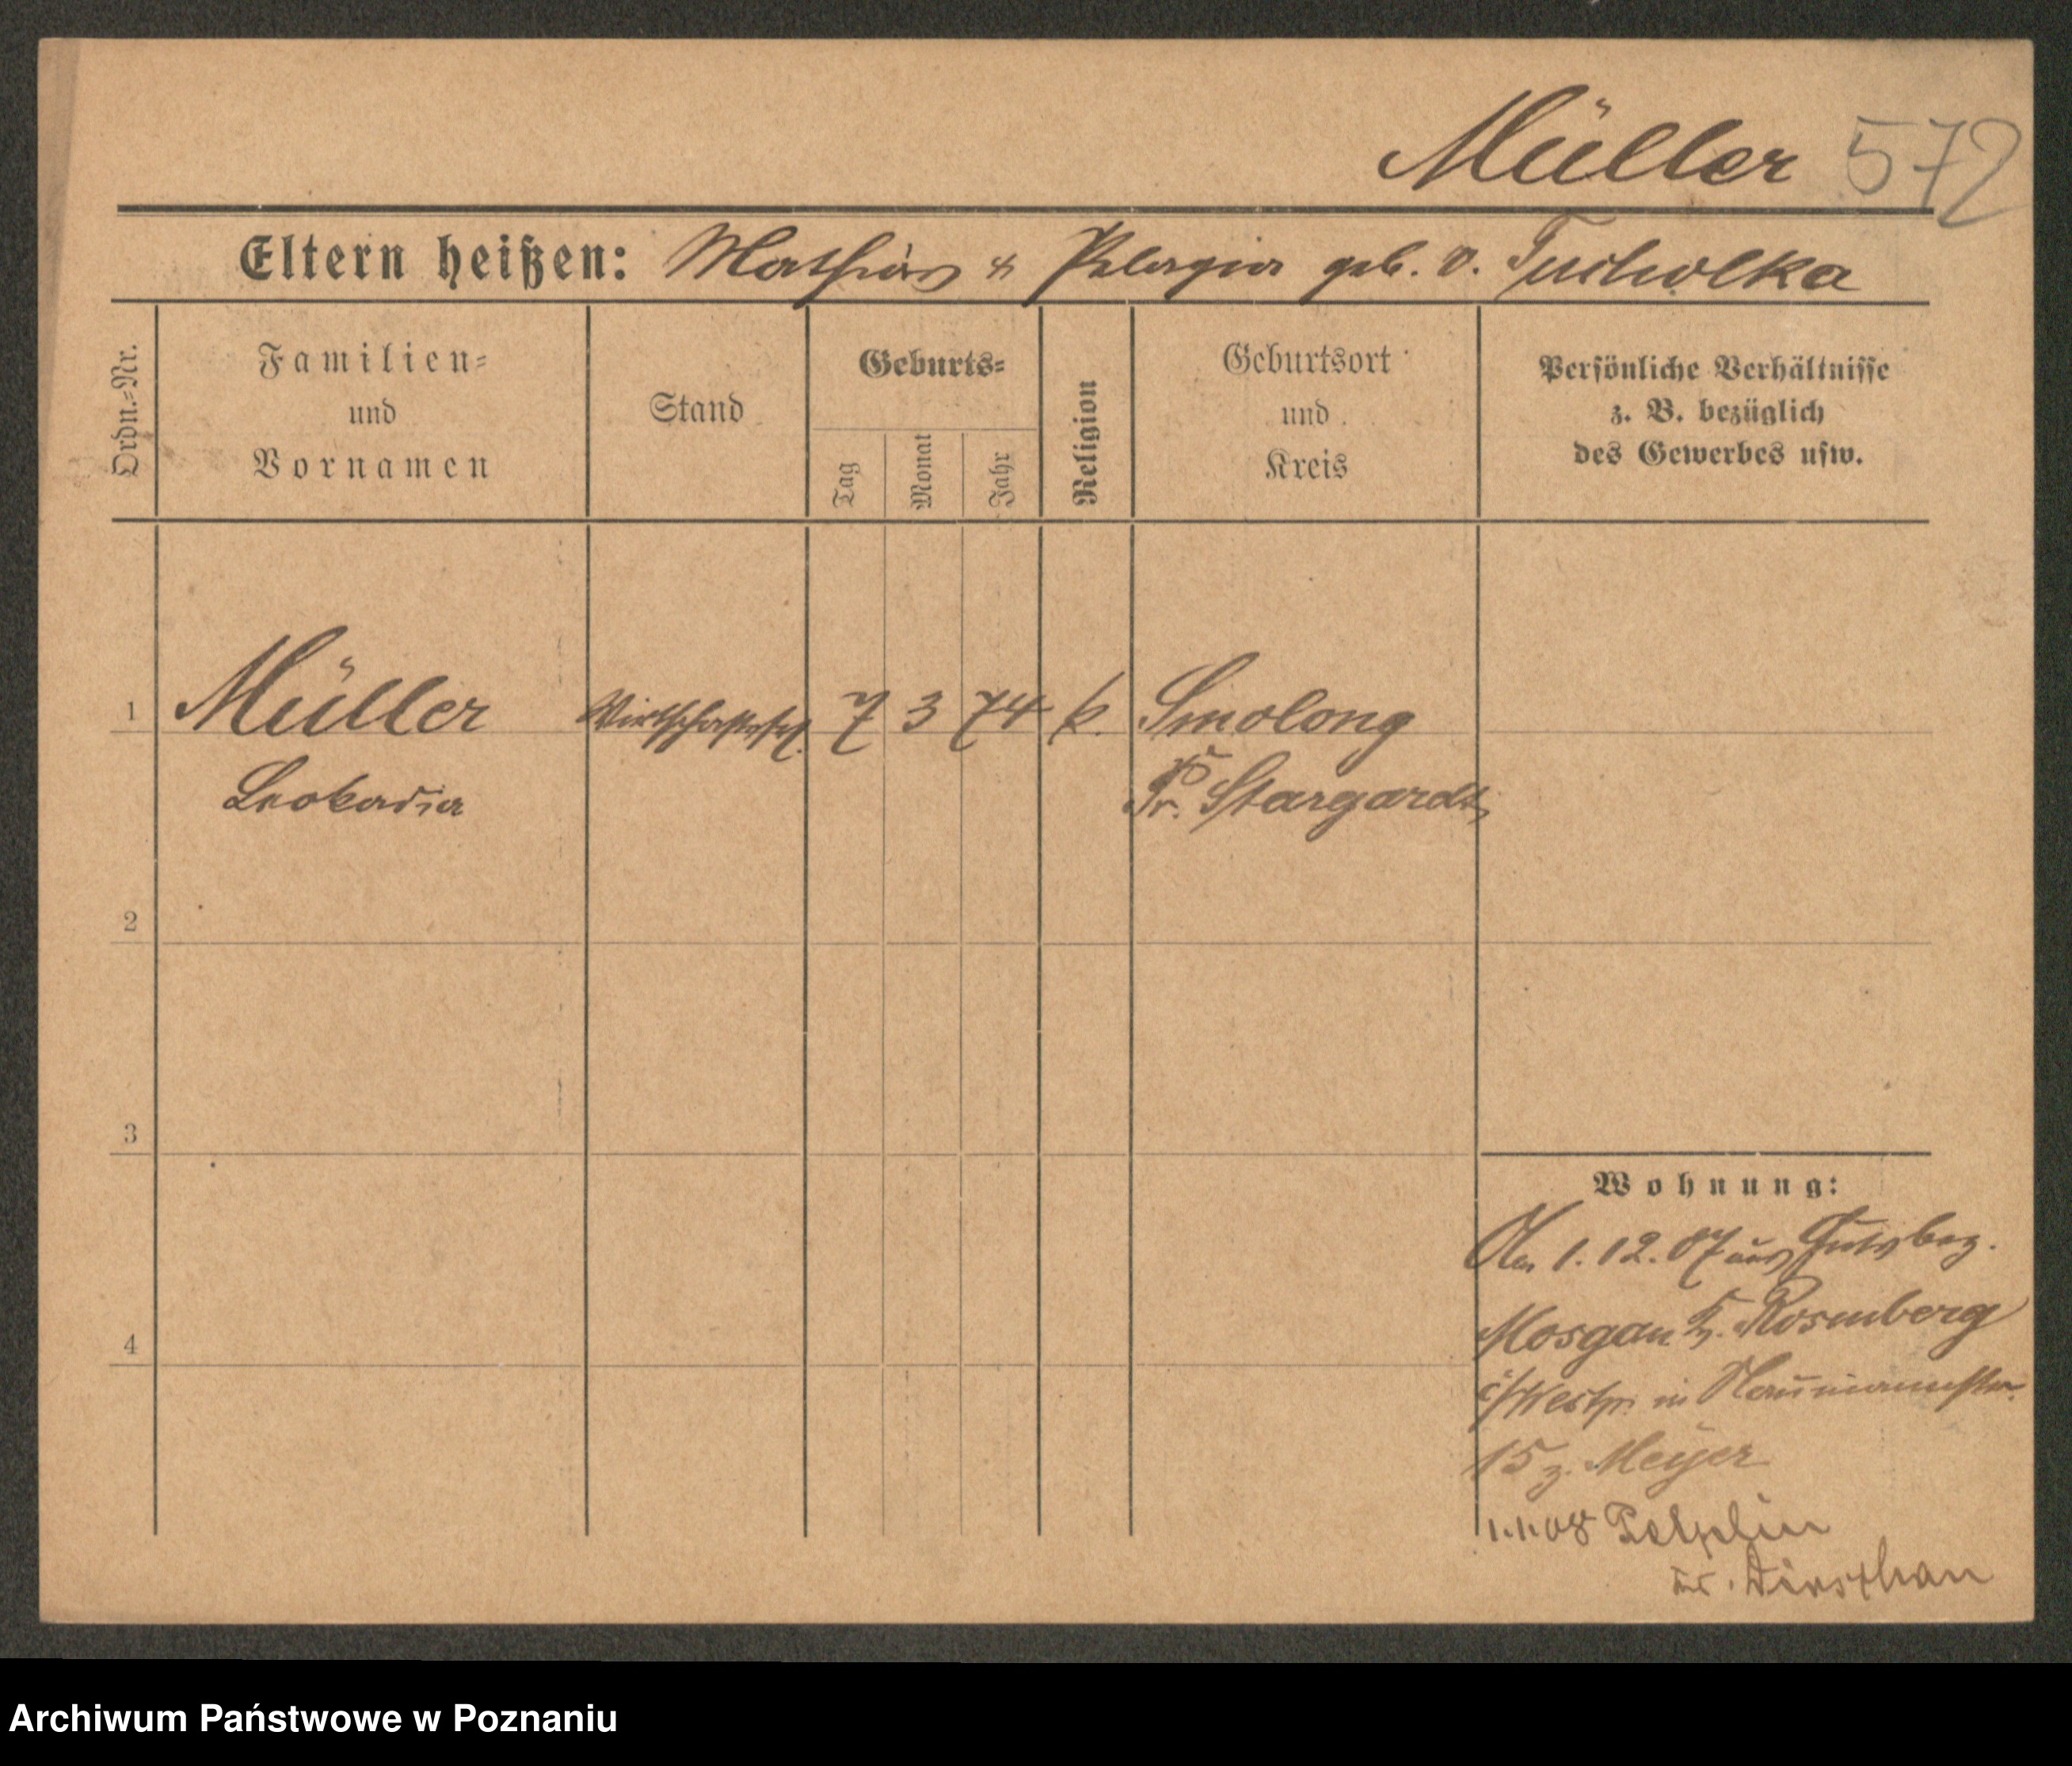 Müller 572
Eltern heißen: Mathias & Pelagia geb. v. Tucholka
Ordn.-Nr.
Familien-
und
Vornamen
Stand
Geburts-
Tag
Monat
Jahr
Religion
Geburtsort
und
Kreis
Persönliche Verhältnisse
z. B. bezüglich
des Gewerbes usw.
1 Müller Wirtschaftsfrl. 7 3 74 k. Smolong
Leokadia
Pr. Stargardt
2
3
4
Wohnung:
1.12.07 aus Gutsbez.
Mosgau Kr. Rosenberg
i/Westpr. in Naumannstr.
15 z. Meyer
1.1.08 Pelplin
Kr. Dirschau
Archiwum Państwowe w Poznaniu